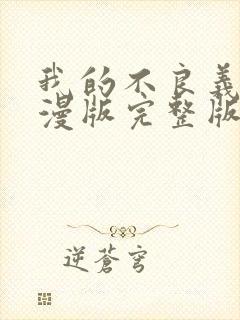 我的不良義
漫版完整版
逆蒼穹